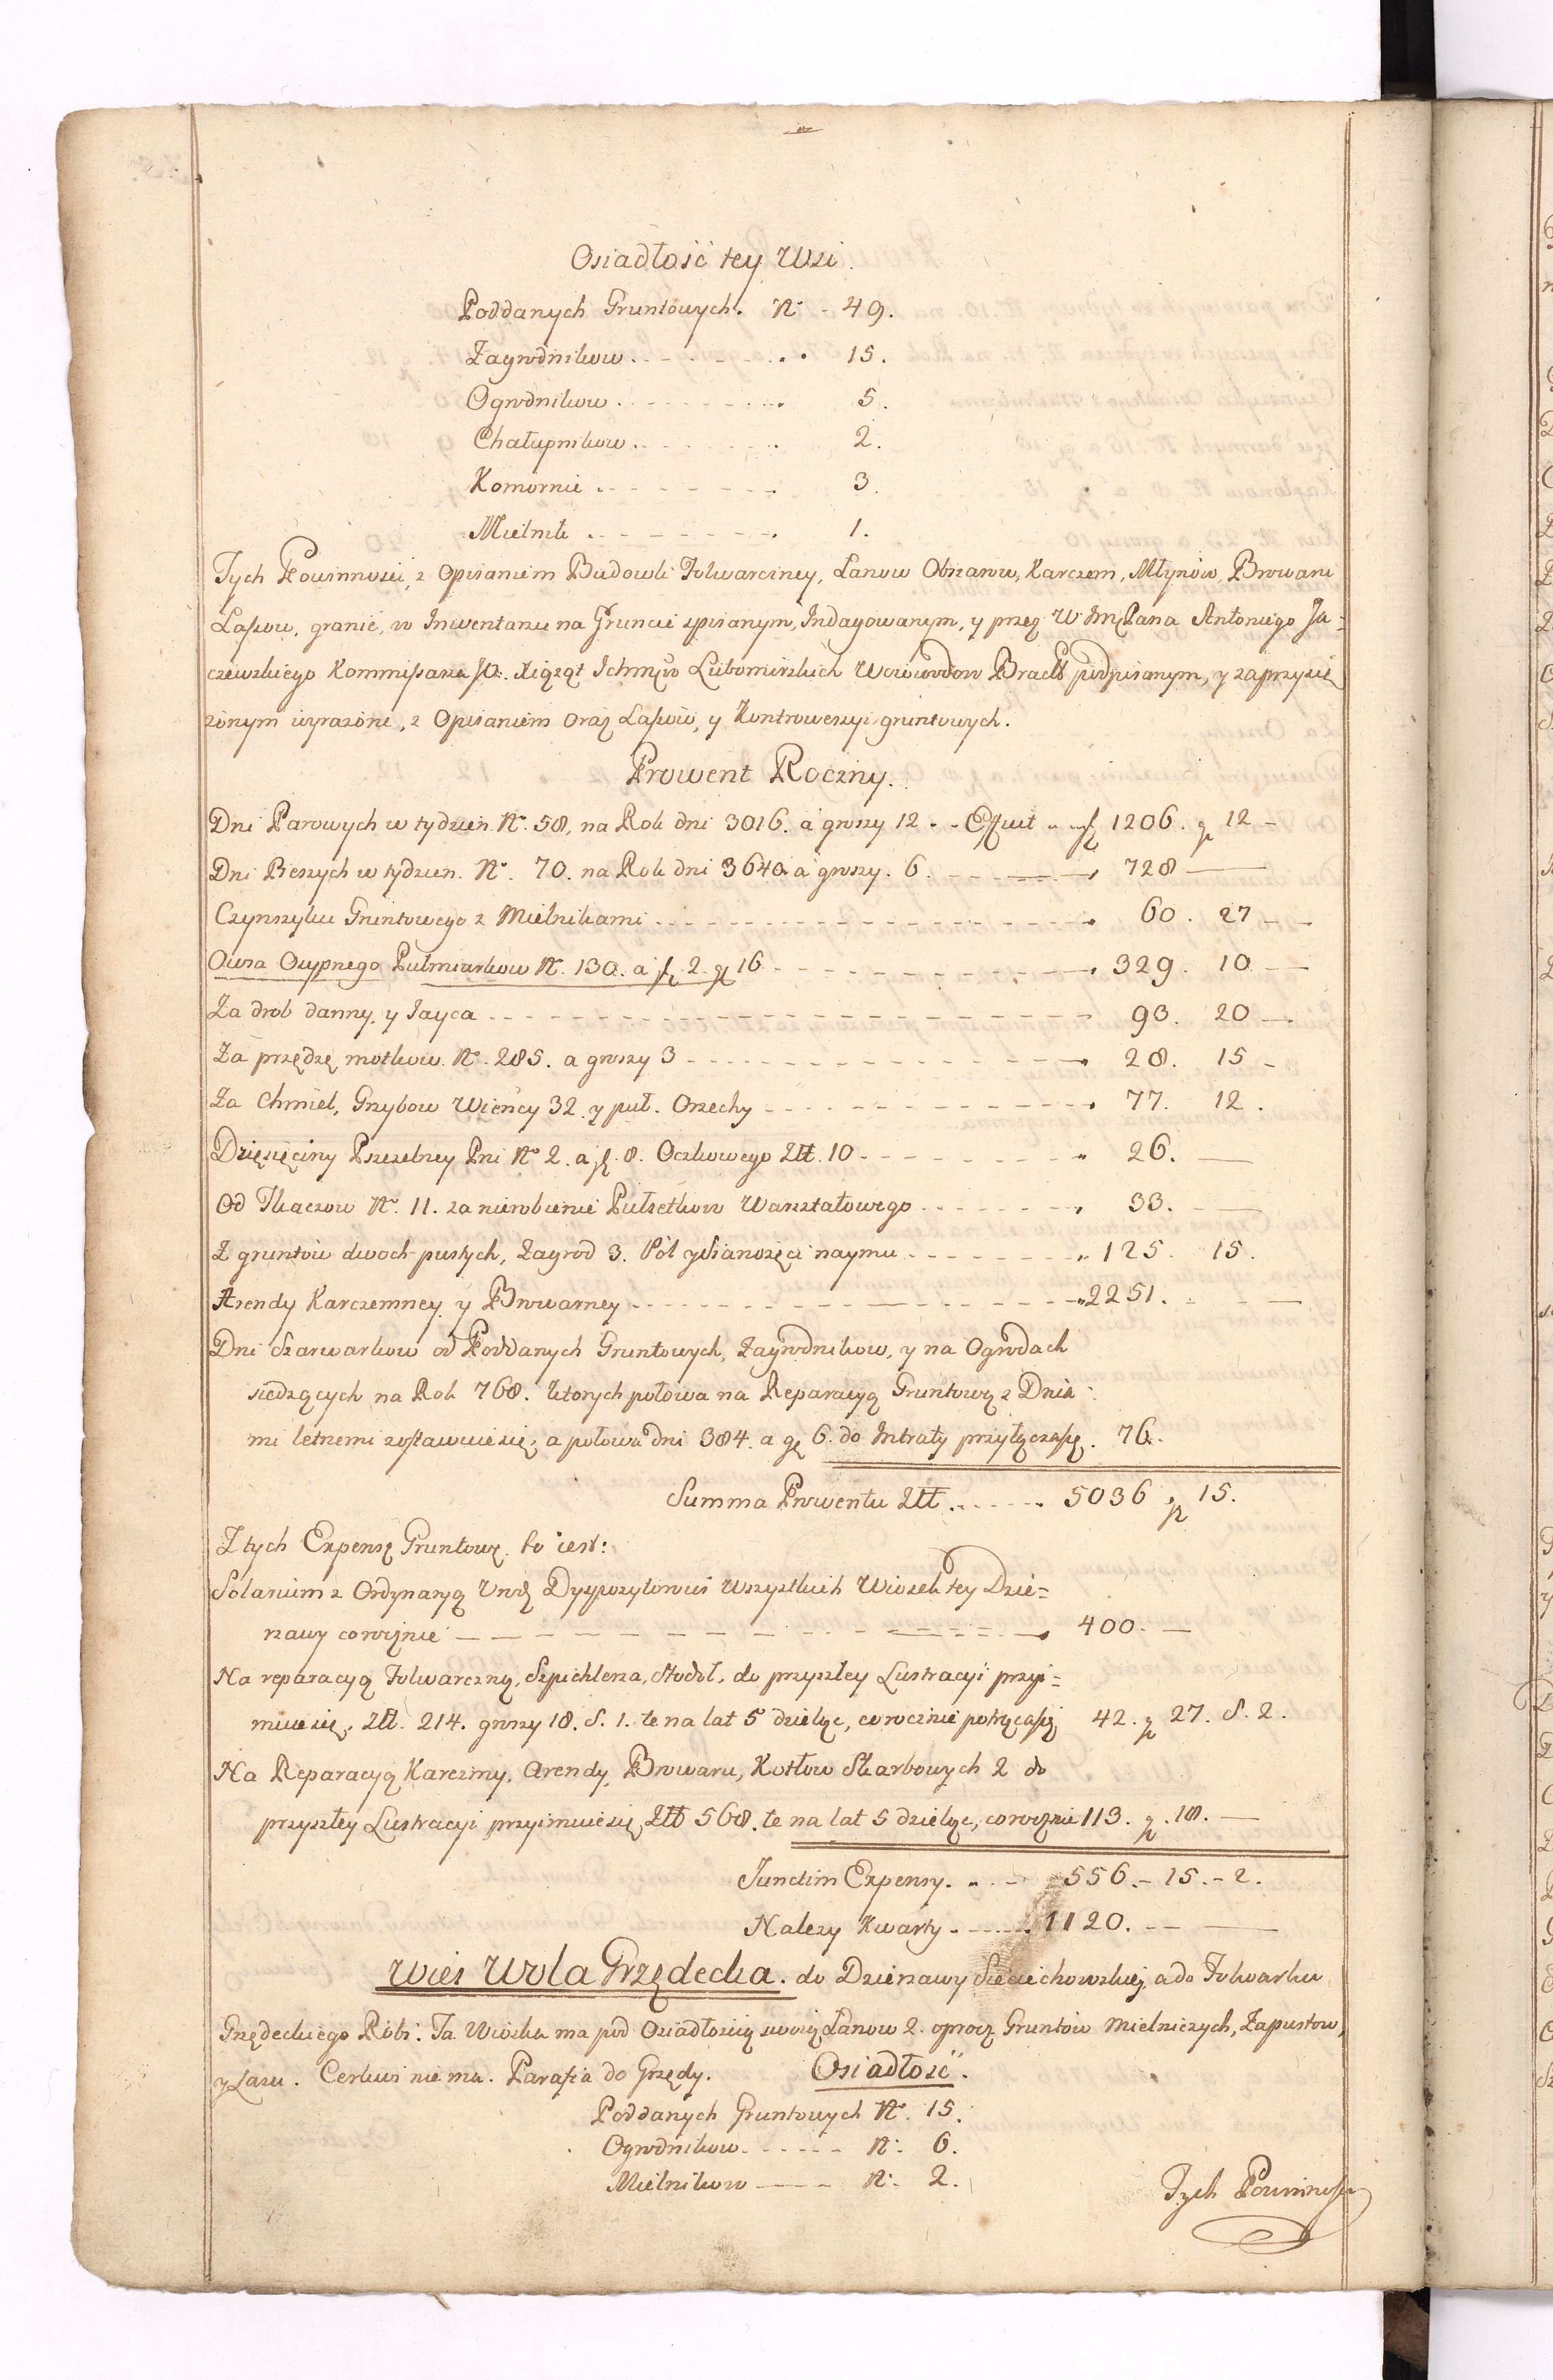 Osiadłość tey Wsi.
Poddanych Gruntowych. N. - 49.
Zagrodnikow . - - - - - . . 15.
Ogrodnikow . - - - - - . 5.
Chałupnikow . - - - - - . 2.
Komornic . - - - - - . 3.
Mielnik . - - - - - . 1.
Tych Powinnosci, z Opisaniem Budowli Folwarczney, Łanow Obszarow, Karczem, Młynów, Browaru
Lasow, granic, w Inwentarzu na Gruncie spisanym, Indagowanym, y przez W Jmć Pana Antoniego Ja=
czewskiego Kommissarza JO. Xiążąt Ichmćw Lubomirskich Woiewodow Bracł podpisanym, y zaprzysię
żonym wyrażone, z Opisaniem oraz Lasów, y Kontrowersyi gruntowych.
Prowent Roczny.
Dni Parowych w tydzien N. 58, na Rok dni 3016. a groszy 12 - - Efficit - - f 1206. g 12 -
Dni Pieszych w tydzien. N. 70. na Rok dni 3640 a groszy. 6. - - - - 728 —
Czynszyku Gruntowego z Mielnikami - - - - - - 60. 27 - -
Owsa Osypnego Pułmiarkow N. 130. a f 2. g 16 - - - - - 329. 10 —
Za drob danny y Jayca - - - - - - 93. 20 -
Za przędzę motkow. N. 285. a groszy 3 - - - - - 28. 15 -
Za Chmiel, Grzybow Wiency 32. y puł. Orzechy - - - - - 77. 12.
Dziesięciny Pszczelney Pni N. 2. a f. 8. Oczkowego Złł. 10 - - - - - 26. —
Od Tkaczow N. 11. za nierobienie Pułsetkow Warsztatowego - - - - 33. —
Z gruntów dwoch pustych, Zagrod 3. Pól y Sianożęci naymu - - - - 125. 15.
Arendy Karczemney y Browarney - - - - - - 2251. - - —
Dni Szarwarkow od Poddanych Gruntowych, Zagrodnikow, y na Ogrodach
siedzących na Rok 768. ktorych połowa na Reparacyą Gruntową z Dnia:
mi letnemi zostawuie się, a połowa dni 384. a g 6. do Intraty przyłącza się. 76.
Summa Prowentu Złł. - - - - 5036 g 15.
Z tych Expensę Gruntową. to iest:
Solarium z Ordynaryą Urodz Dyspozytorowi wszystkich Wiosek tey Dzie=
rzawy corocznie — — — — — 400. —
Na reparacyą Folwarczną, Szpichlerza, Stodół, do przyszłey Lustracyi przyi=
muie się, Złł. 214. groszy 18. S. 1. te na lat 5 dzieląc, corocznie potrąca się 42. g 27. S. 2.
Na Reparacyą Karczmy, Arendy, Browaru, Kotłow Skarbowych 2 do
przyszłey Lustracyi przyimuie się, Złł 568. te na lat 5 dzieląc, corocznie 113. g. 18. —
Junctim Expensy. - - - 556. - 15. - 2.
Nalezy Kwarty - - - - 1120. - - —
Wieś Wola Grzędecka. do Dzierzawy Sieciechowskiey, a do Folwarku
Grzędeckiego Robi. Ta Wioska ma pod Osiadłością swoią Łanow 2. oprocz Gruntów mielniczych, Zapustow,
y Lasu. Cerkwi nie ma. Parafia do Grzędy. Osiadłość.
Poddanych Gruntowych N. 15.
Ogrodnikow - - - - - N. 6.
Mielnikow — - - N. 2.
Tych Powinnosci